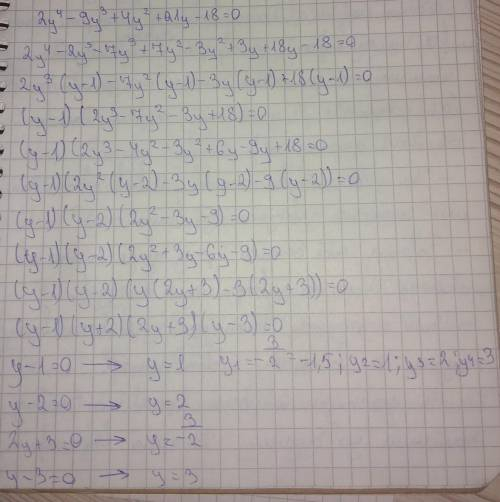 2y⁴-9y³+4y²+21y-18=0
2y⁴-2y³-7y³+7y²-3y²+3y+18y-18=0
2y³(y-1)-7y²(y-1)-3y(y-1)+18(y-1)=0
(y-1)(2y³-7y²-3y+18)=0
(y-1)(2y³-4y²-3y²+6y-9y+18=0
(y-1)(2y²(y-2)-3y(y-2)-9(y-2))=0
(y-1)(y-2)(2y²-3y-9)=0
(y-1)(y-2)(2y²+3y-6y-9)=0
(y-1)(y-2)(y(2y+3)-3(2y+3))=0
(y-1)(y+2)(2y+3)(y-3)=0
y-1=0 → y=1 y₁=-3/2=-1,5; y₂=1; y₃=2; y₄=3
y-2=0 → y=2
2y+3=0 → y=-3/2
y-3=0 → y=3